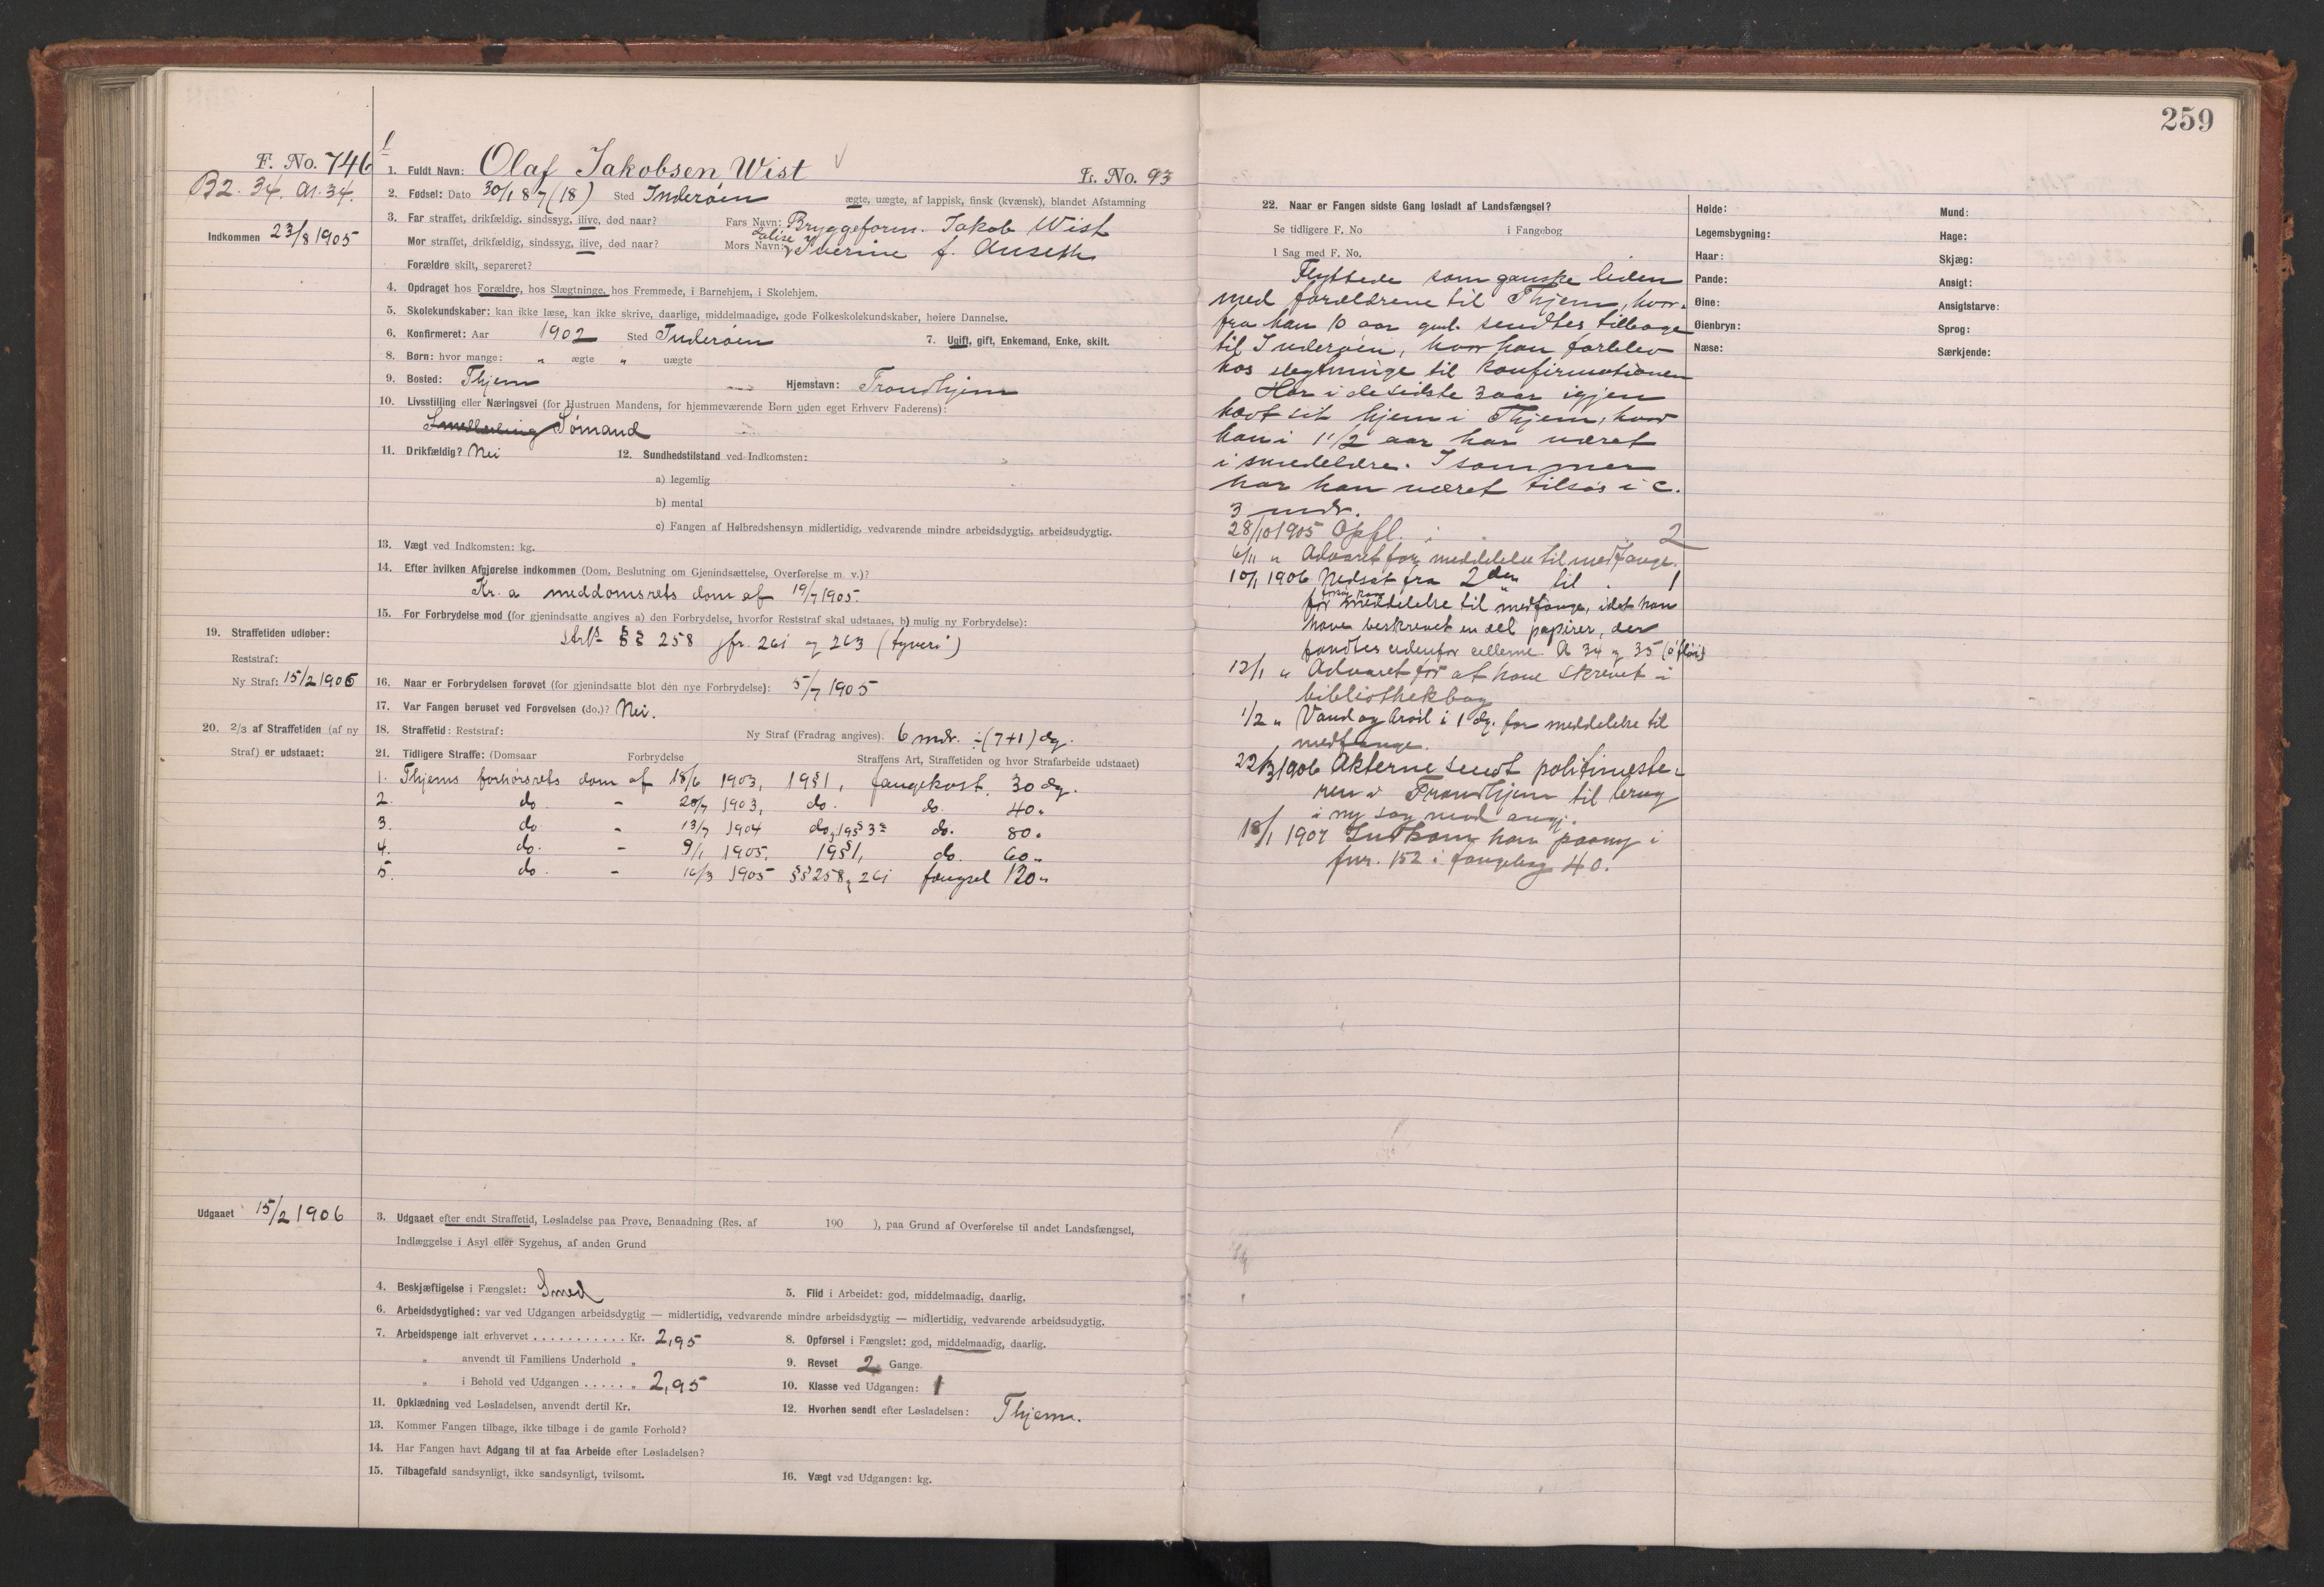 259
F. No. 746
B2. 34. A1. 34.
Indkommen 23/8 1905
1. Fuldt Navn: Olaf Jakobsen Wist
L. No. 93
2. Fødsel: Dato 30/1 87 (18) Sted Inderøen ægte, uægte, af lappisk, finsk (kvænsk), blandet Afstamning
3. Far straffet, drikfældig, sindssyg, ilive, død naar? Fars Navn: Bryggeform. Jakob Wist
Mor straffet, drikfældig, sindssyg, ilive, død naar? Mors Navn: Iverine f. Auseth
Forældre skilt, separeret?
4. Opdraget hos Forældre, hos Slægtninge, hos Fremmede, i Barnehjem, i Skolehjem.
5. Skolekundskaber: kan ikke læse, kan ikke skrive, daarlige, middelmaadige, gode Folkeskolekundskaber, høiere Dannelse.
6. Konfirmeret: Aar 1902 Sted Inderøen 7. Ugift, gift, Enkemand, Enke, skilt.
8. Børn: hvor mange: " ægte " uægte
9. Bosted: Thjem Hjemstavn: Trondhjem
10. Livsstilling eller Næringsvei (for Hustruen Mandens, for hjemmeværende Børn uden eget Erhverv Faderens):
Sømand
11. Drikfældig? Nei 12. Sundhedstilstand ved Indkomsten:
a) legemlig
b) mental
c) Fangen af Helbredshensyn midlertidig, vedvarende mindre arbeidsdygtig, arbeidsudygtig.
13. Vægt ved Indkomsten: kg.
14. Efter hvilken Afgjørelse indkommen (Dom, Beslutning om Gjenindsættelse, Overførelse m. v.)?
Kr. a meddomsrets dom af 19/7 1905.
15. For Forbrydelse mod (for gjenindsatte angives a) den Forbrydelse, hvorfor Reststraf skal udstaaes, b) mulig ny Forbrydelse):
§§ 258 jfr. 261 og 263 (tyveri)
19. Straffetiden udløber:
Reststraf:
Ny Straf: 15/2 1906
16. Naar er Forbrydelsen forøvet (for gjenindsatte blot den nye Forbrydelse): 5/7 1905
17. Var Fangen beruset ved Forøvelsen (do.)? Nei.
20. 2/3 af Straffetiden (af ny
Straf) er udstaaet:
18. Straffetid: Reststraf: Ny Straf (Fradrag angives). 6 mdr. ÷ (7+1) dg.
21. Tidligere Straffe: (Domsaar Forbrydelse Straffens Art, Straffetiden og hvor Strafarbeide udstaaet)
1. Thjems forhørsrets dom af 18/6 1903, 19§1, fangekost. 30 dg.
2. do. - 20/7 1903, do. do. 40 "
3. do - 13/7 1904 do, 19§3 do. 80 "
4. do. - 9/1 1905, 19§1, do. 60 "
5. do - 16/3 1905 §§ 258, 261 fængsel 120 "
Udgaaet 15/2 1906
3. Udgaaet efter endt Straffetid, Løsladelse paa Prøve, Benaadning (Res. af 190 ), paa Grund af Overførelse til andet Landsfængsel,
Indlæggelse i Asyl eller Sygehus, af anden Grund
4. Beskjæftigelse i Fængslet: Smed 5. Flid i Arbeidet: god, middelmaadig, daarlig.
6. Arbeidsdygtighed: var ved Udgangen arbeidsdygtig — midlertidig, vedvarende mindre arbeidsdygtig — midlertidig, vedvarende arbeidsudygtig.
7. Arbeidspenge ialt erhvervet ........... Kr. 2,95 8. Opførsel i Fængslet: god, middelmaadig, daarlig.
" anvendt til Familiens Underhold " 9. Revset 2 Gange.
" i Behold ved Udgangen ...... " 2,95 10. Klasse ved Udgangen: 1
11. Opklædning ved Løsladelsen, anvendt dertil Kr. 12. Hvorhen sendt efter Løsladelsen: Thjem.
13. Kommer Fangen tilbage, ikke tilbage i de gamle Forhold?
14. Har Fangen havt Adgang til at faa Arbeide efter Løsladelsen?
15. Tilbagefald sandsynligt, ikke sandsynligt, tvilsomt. 16. Vægt ved Udgangen: kg.
22. Naar er Fangen sidste Gang løsladt af Landsfængsel?
Se tidligere F. No i Fangebog
I Sag med F. No.
Flyttede som ganske liden
med forældrene til Thjem, hvor-
fra han 10 aar gml. sendtes tilbage
til Inderøen, hvor han forblev
hos slegtninge til konfirmationen
Har i de sidste 3 aar igjen
havt sit hjem i Thjem, hvor
han i 1 1/2 aar har været
i smedelære. I sommer
har han været tilsøs i c.
3 mdr.
28/10 1905 Opfl. 2
6/11 " Advaret for meddelelse til medfange.
10/1 1906 Nedsat fra 2den til 1
for meddelelse til medfange, idet han
have beskrevet en del papirer, der
fandtes udenfor cellerne A 34 og 35
12/1 " Advaret for at have skrevet i
bibliothekbog
1/2 " Vand og brød i 1 dg. for meddelelse til
medfange.
22/3 1906 Akterne sendt politimeste-
ren i Trondhjem til brug
i ny sag mod angj.
18/1 1907 Indkom han paany i
fnr. 152 i fangebog 40.
Høide:
Legemsbygning:
Haar:
Pande:
Øine:
Øienbryn:
Næse:
Mund:
Hage:
Skjæg:
Ansigt:
Ansigtsfarve:
Sprog:
Særkjende: